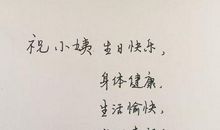 祝小姨生日快乐，
身体健康，
生活愉快，